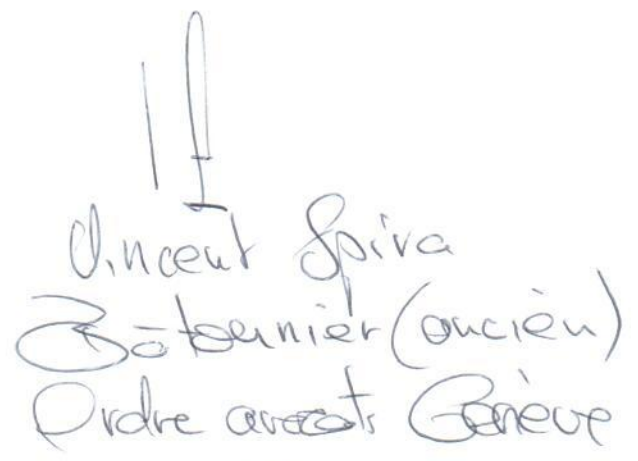 Vincent Spira
Bâtonnier (ancien)
Ordre avocats Genève